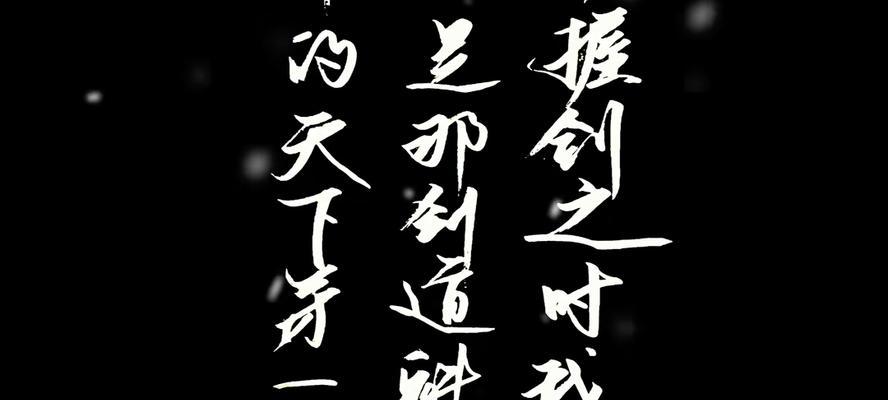 握剑之时我
是那剑道魁
的天下第一